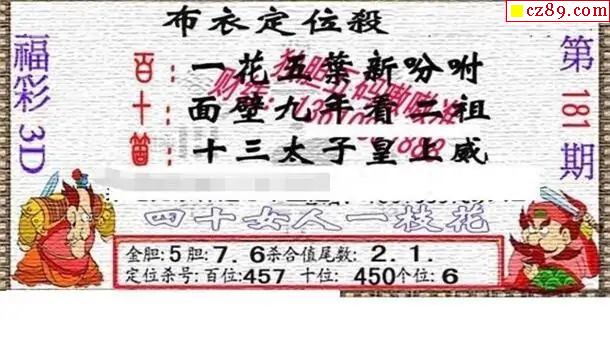 cz89.com
布衣定位殺
福彩3D
第181期
百:一花五葉新吩咐
十:面壁九年看二祖
個:十三太子皇上威
四十女人一枝花
金胆:5胆:7.6杀合值尾数:2.1.
定位杀号:百位:457 十位:450个位:6